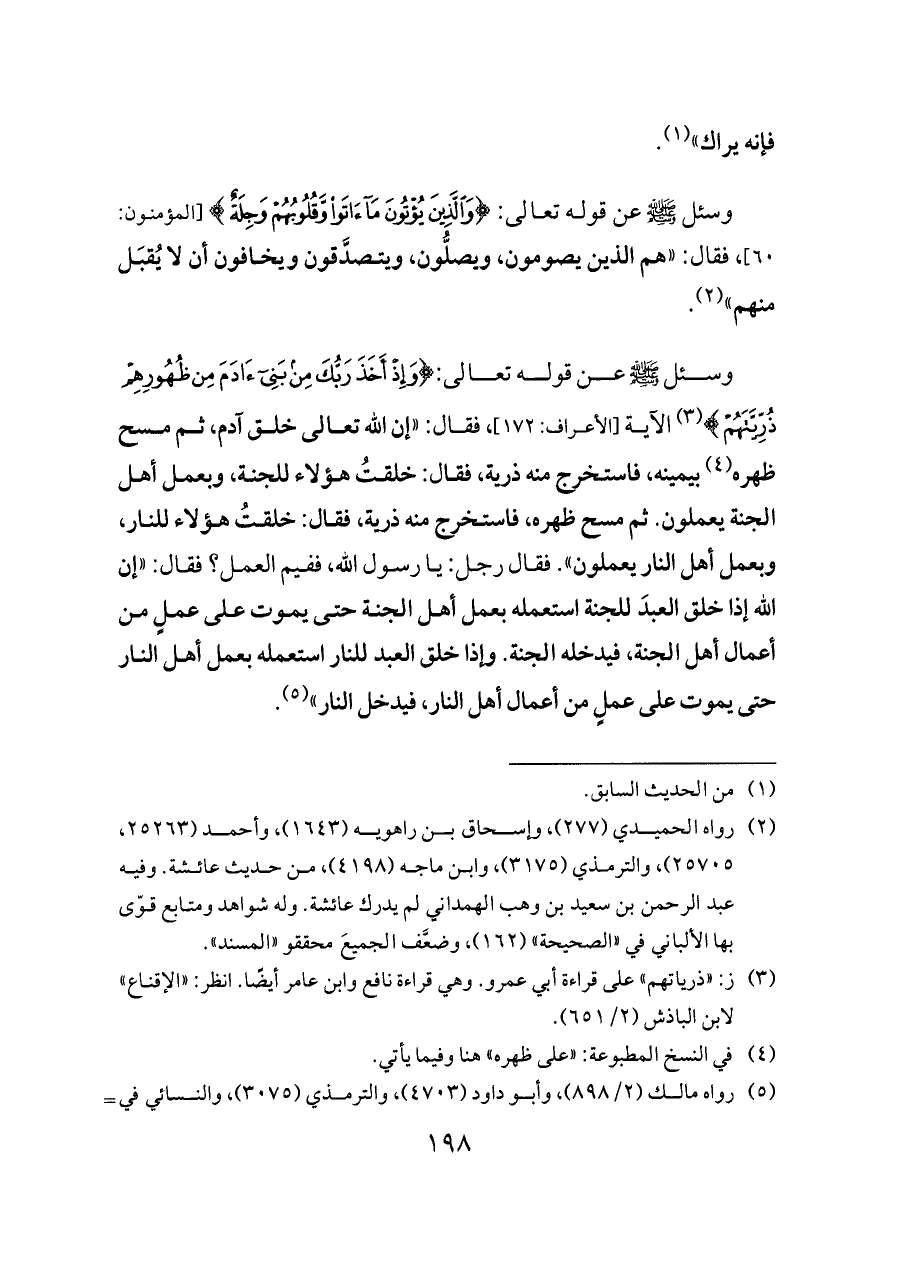 فإنه يراك»(١).
وسئل ﷺ عن قوله تعالى: ﴿وَالَّذِينَ يُؤْتُونَ مَآ ءَاتَوا۟ وَّقُلُوبُهُمْ وَجِلَةٌ﴾ [المؤمنون:
٦٠]، فقال: «هم الذين يصومون، ويصلُّون، ويتصدَّقون ويخافون أن لا يُقبَل
منهم»(٢).
وسئل ﷺ عن قوله تعالى: ﴿وَإِذْ أَخَذَ رَبُّكَ مِنۢ بَنِىٓ ءَادَمَ مِن ظُهُورِهِمْ
ذُرِّيَّتَهُمْ﴾(٣) الآية [الأعراف: ١٧٢]، فقال: «إن الله تعالى خلق آدم، ثم مسح
ظهره(٤) بيمينه، فاستخرج منه ذرية، فقال: خلقتُ هؤلاء للجنة، وبعمل أهل
الجنة يعملون. ثم مسح ظهره، فاستخرج منه ذرية، فقال: خلقتُ هؤلاء للنار،
وبعمل أهل النار يعملون». فقال رجل: يا رسول الله، ففيم العمل؟ فقال: «إن
الله إذا خلق العبدَ للجنة استعمله بعمل أهل الجنة حتى يموت على عملٍ من
أعمال أهل الجنة، فيدخله الجنة. وإذا خلق العبد للنار استعمله بعمل أهل النار
حتى يموت على عملٍ من أعمال أهل النار، فيدخل النار»(٥).
(١) من الحديث السابق.
(٢) رواه الحميدي (٢٧٧)، وإسحاق بن راهويه (١٦٤٣)، وأحمد (٢٥٢٦٣،
٢٥٧٠٥)، والترمذي (٣١٧٥)، وابن ماجه (٤١٩٨)، من حديث عائشة. وفيه
عبد الرحمن بن سعيد بن وهب الهمداني لم يدرك عائشة. وله شواهد ومتابع قوّى
بها الألباني في «الصحيحة» (١٦٢)، وضعَّف الجميعَ محققو «المسند».
(٣) ز: «ذرياتهم» على قراءة أبي عمرو. وهي قراءة نافع وابن عامر أيضًا. انظر: «الإقناع»
لابن الباذش (٢/ ٦٥١).
(٤) في النسخ المطبوعة: «على ظهره» هنا وفيما يأتي.
(٥) رواه مالك (٢/ ٨٩٨)، وأبو داود (٤٧٠٣)، والترمذي (٣٠٧٥)، والنسائي في=
١٩٨